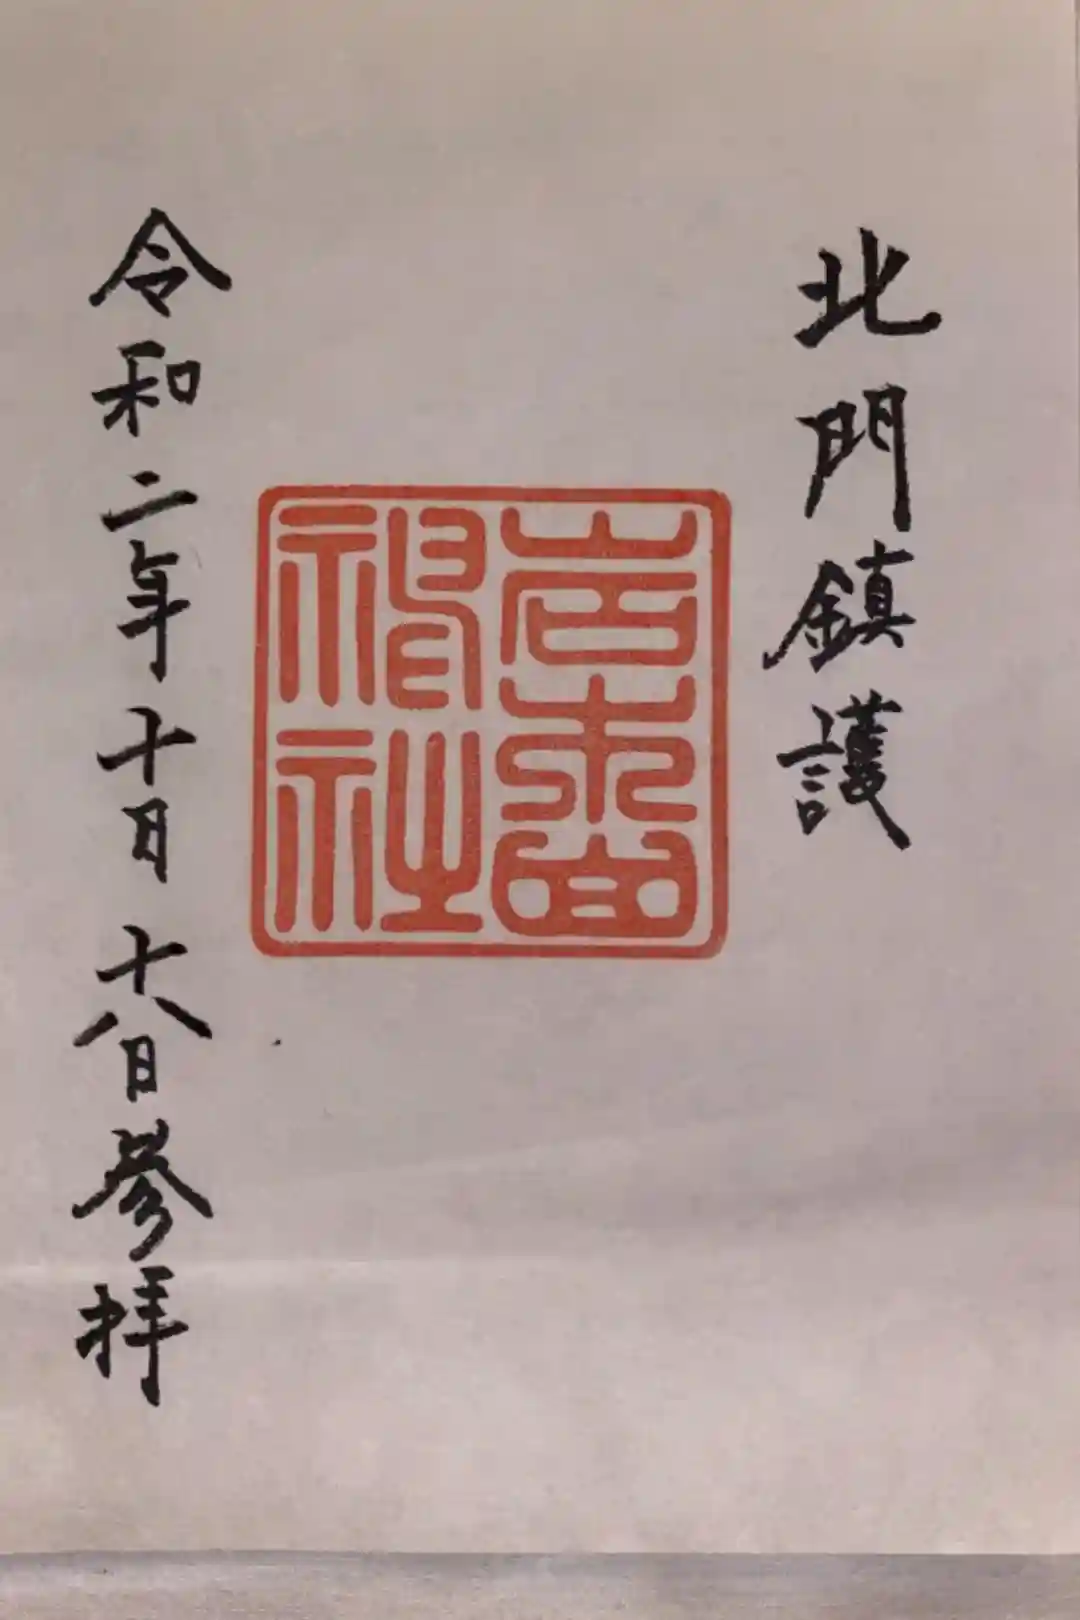 北門鎮護
岩木山
神社
令和二年十月十八日參拝